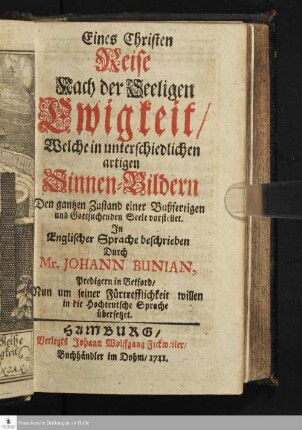 Eines Christen
Reise
Nach der Seeligen
Ewigkeit/
Welche in unterschiedlichen
artigen
Sinnen-Bildern
Den gantzen Zustand einer Bußfertigen
und Gottsuchenden Seele vorstellet.
In
Englischer Sprache beschrieben
Durch
Mr. JOHANN BUNIAN,
Predigern in Betford/
Nun um seiner Fürtrefflichkeit willen
in die Hochteutsche Sprache
übersetzet.
HAMBURG/
Verlegts Johann Wolffgang Fickweiler/
Buchhändler im Dohm/ 1711.
Franckesche Stiftungen zu Halle